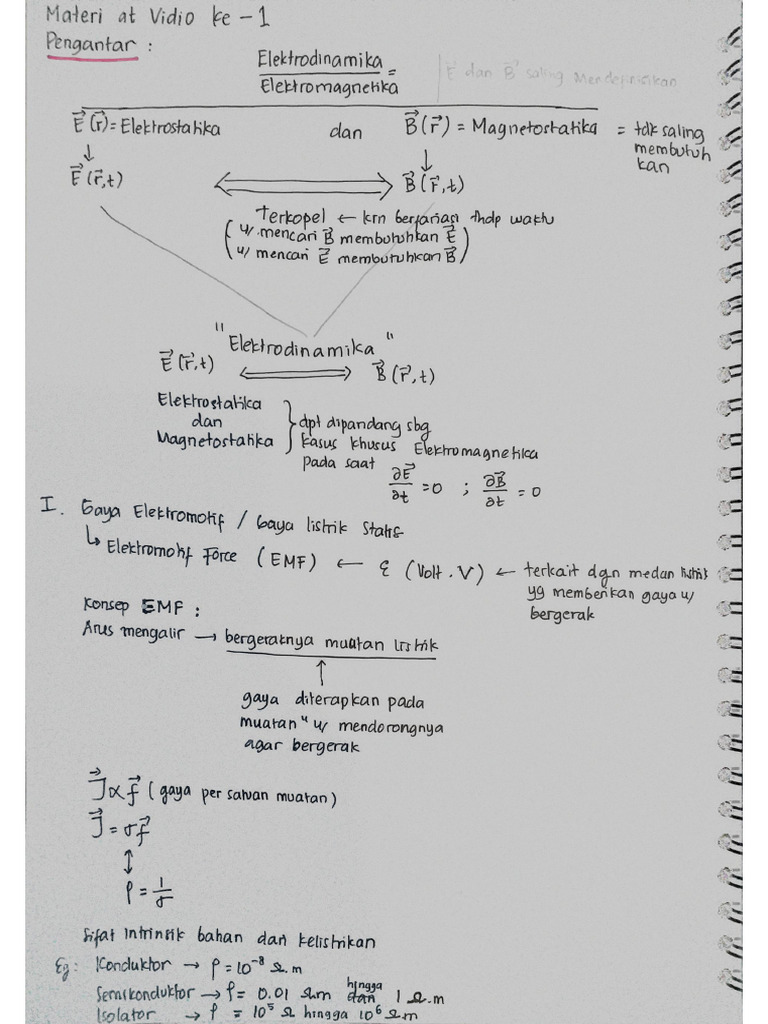 Materi at Vidio ke - 1
Pengantar :
Elektrodinamika
Elektromagnetika =
E⃗ dan B⃗ saling Mendefinisikan
E⃗ (r⃗) = Elektrostatika dan B⃗(r⃗) = Magnetostatika = tdk saling
membutuh
kan
↓ ↓
E⃗ (r⃗,t) ⟺ B⃗(r⃗,t)
Terkopel ← krn berfariasi thdp waktu
(u/ mencari B⃗ membutuhkan E⃗
u/ mencari E⃗ membutuhkan B⃗)
"Elektrodinamika"
E⃗ (r⃗,t) ⟺ B⃗ (r⃗,t)
Elektrostatika
dan
Magnetostatika
} dpt dipandang sbg
kasus khusus Elektromagnetika
pada saat
∂E⃗/∂t = 0 ; ∂B⃗/∂t = 0
I. Gaya Elektromotif / Gaya listrik Statis
↳ Elektromotif Force (EMF) ← ε (Volt . V) ← terkait dgn medan listrik
yg memberikan gaya u/
bergerak
Konsep EMF :
Arus mengalir → bergeraknya muatan listrik
↑
gaya diterapkan pada
muatan" u/ mendorongnya
agar bergerak
J⃗ ∝ f⃗ (gaya per satuan muatan)
J⃗ = σf⃗
↕
ρ = 1/σ
Sifat Intrinsik bahan dan kelistrikan
Eg: Konduktor → ρ = 10⁻⁸ Ω.m
Semikonduktor → ρ = 0.01 Ωm hingga 1 Ω.m
Isolator → ρ = 10⁵ Ω hingga 10⁶ Ωm